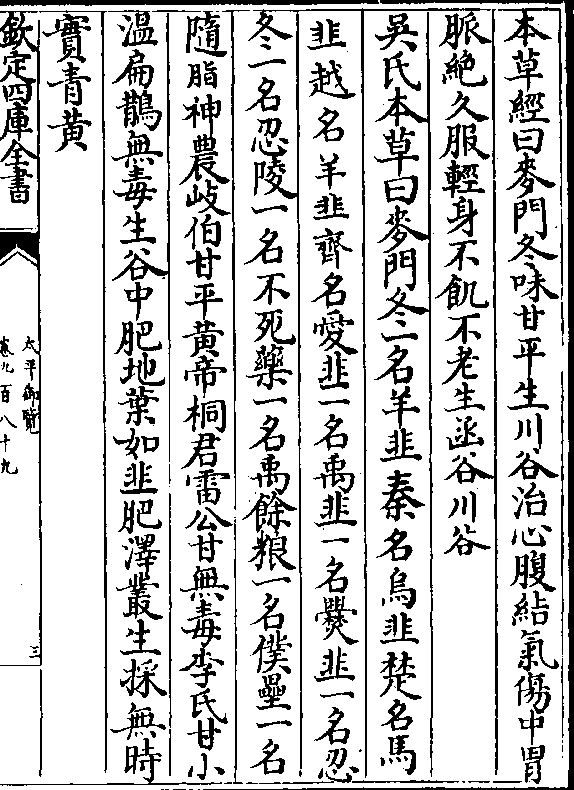 本草經曰麥門冬味甘平生川谷治心腹結氣傷中胃
脈絶久服輕身不飢不老生函谷川谷
吳氏本草曰麥門冬一名羊韭秦名烏韭楚名馬
韭越名羊韭齊名愛韭一名禹韭一名㸑韭一名忍
冬一名忍陵一名不死藥一名禹餘粮一名僕壘一名
隨脂神農歧伯甘平黃帝桐君雷公甘無毒李氏甘小
溫扁鵲無毒生谷中肥地葉如韭肥澤叢生採無時
實青黃
欽定四庫全書
太平御覽
卷九百八十九
三